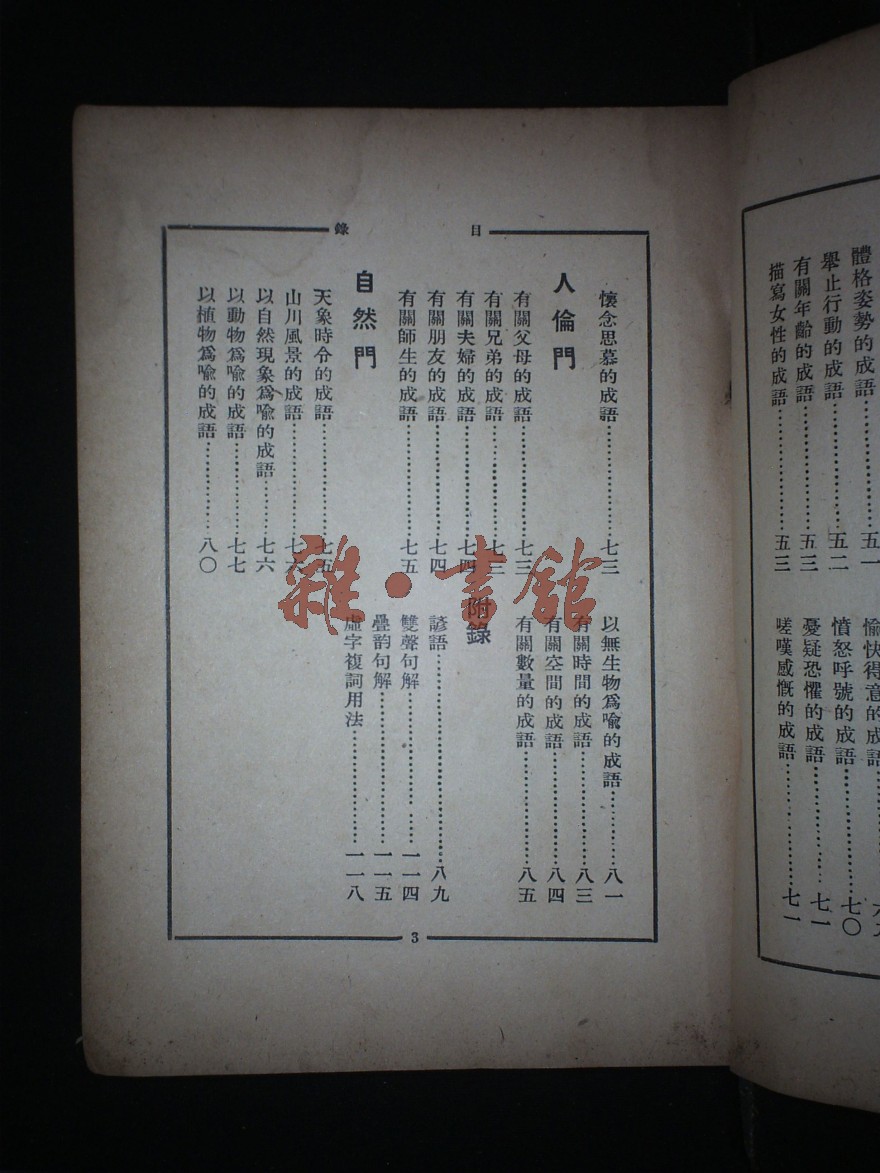 體格姿勢的成語……五一
舉止行動的成語……五二
有關年齡的成語……五三
描寫女性的成語……五三
愉快得意的成語……
憤怒呼號的成語……七〇
憂疑恐懼的成語……七一
嗟嘆感慨的成語……七一
目錄
懷念思慕的成語……七三
人倫門
有關父母的成語……七三
有關兄弟的成語……七三
有關夫婦的成語……七四
有關朋友的成語……七四
有關師生的成語……七五
自然門
天象時令的成語……七五
山川風景的成語……七六
以自然現象爲喩的成語……七六
以動物爲喩的成語……七七
以植物爲喩的成語……八〇
以無生物爲喩的成語……八一
有關時間的成語……八三
有關空間的成語……八四
有關數量的成語……八五
附錄
諺語……八九
雙聲句解……一一四
疊韵句解……一一五
虛字複詞用法……一一八
3
雜·書舘